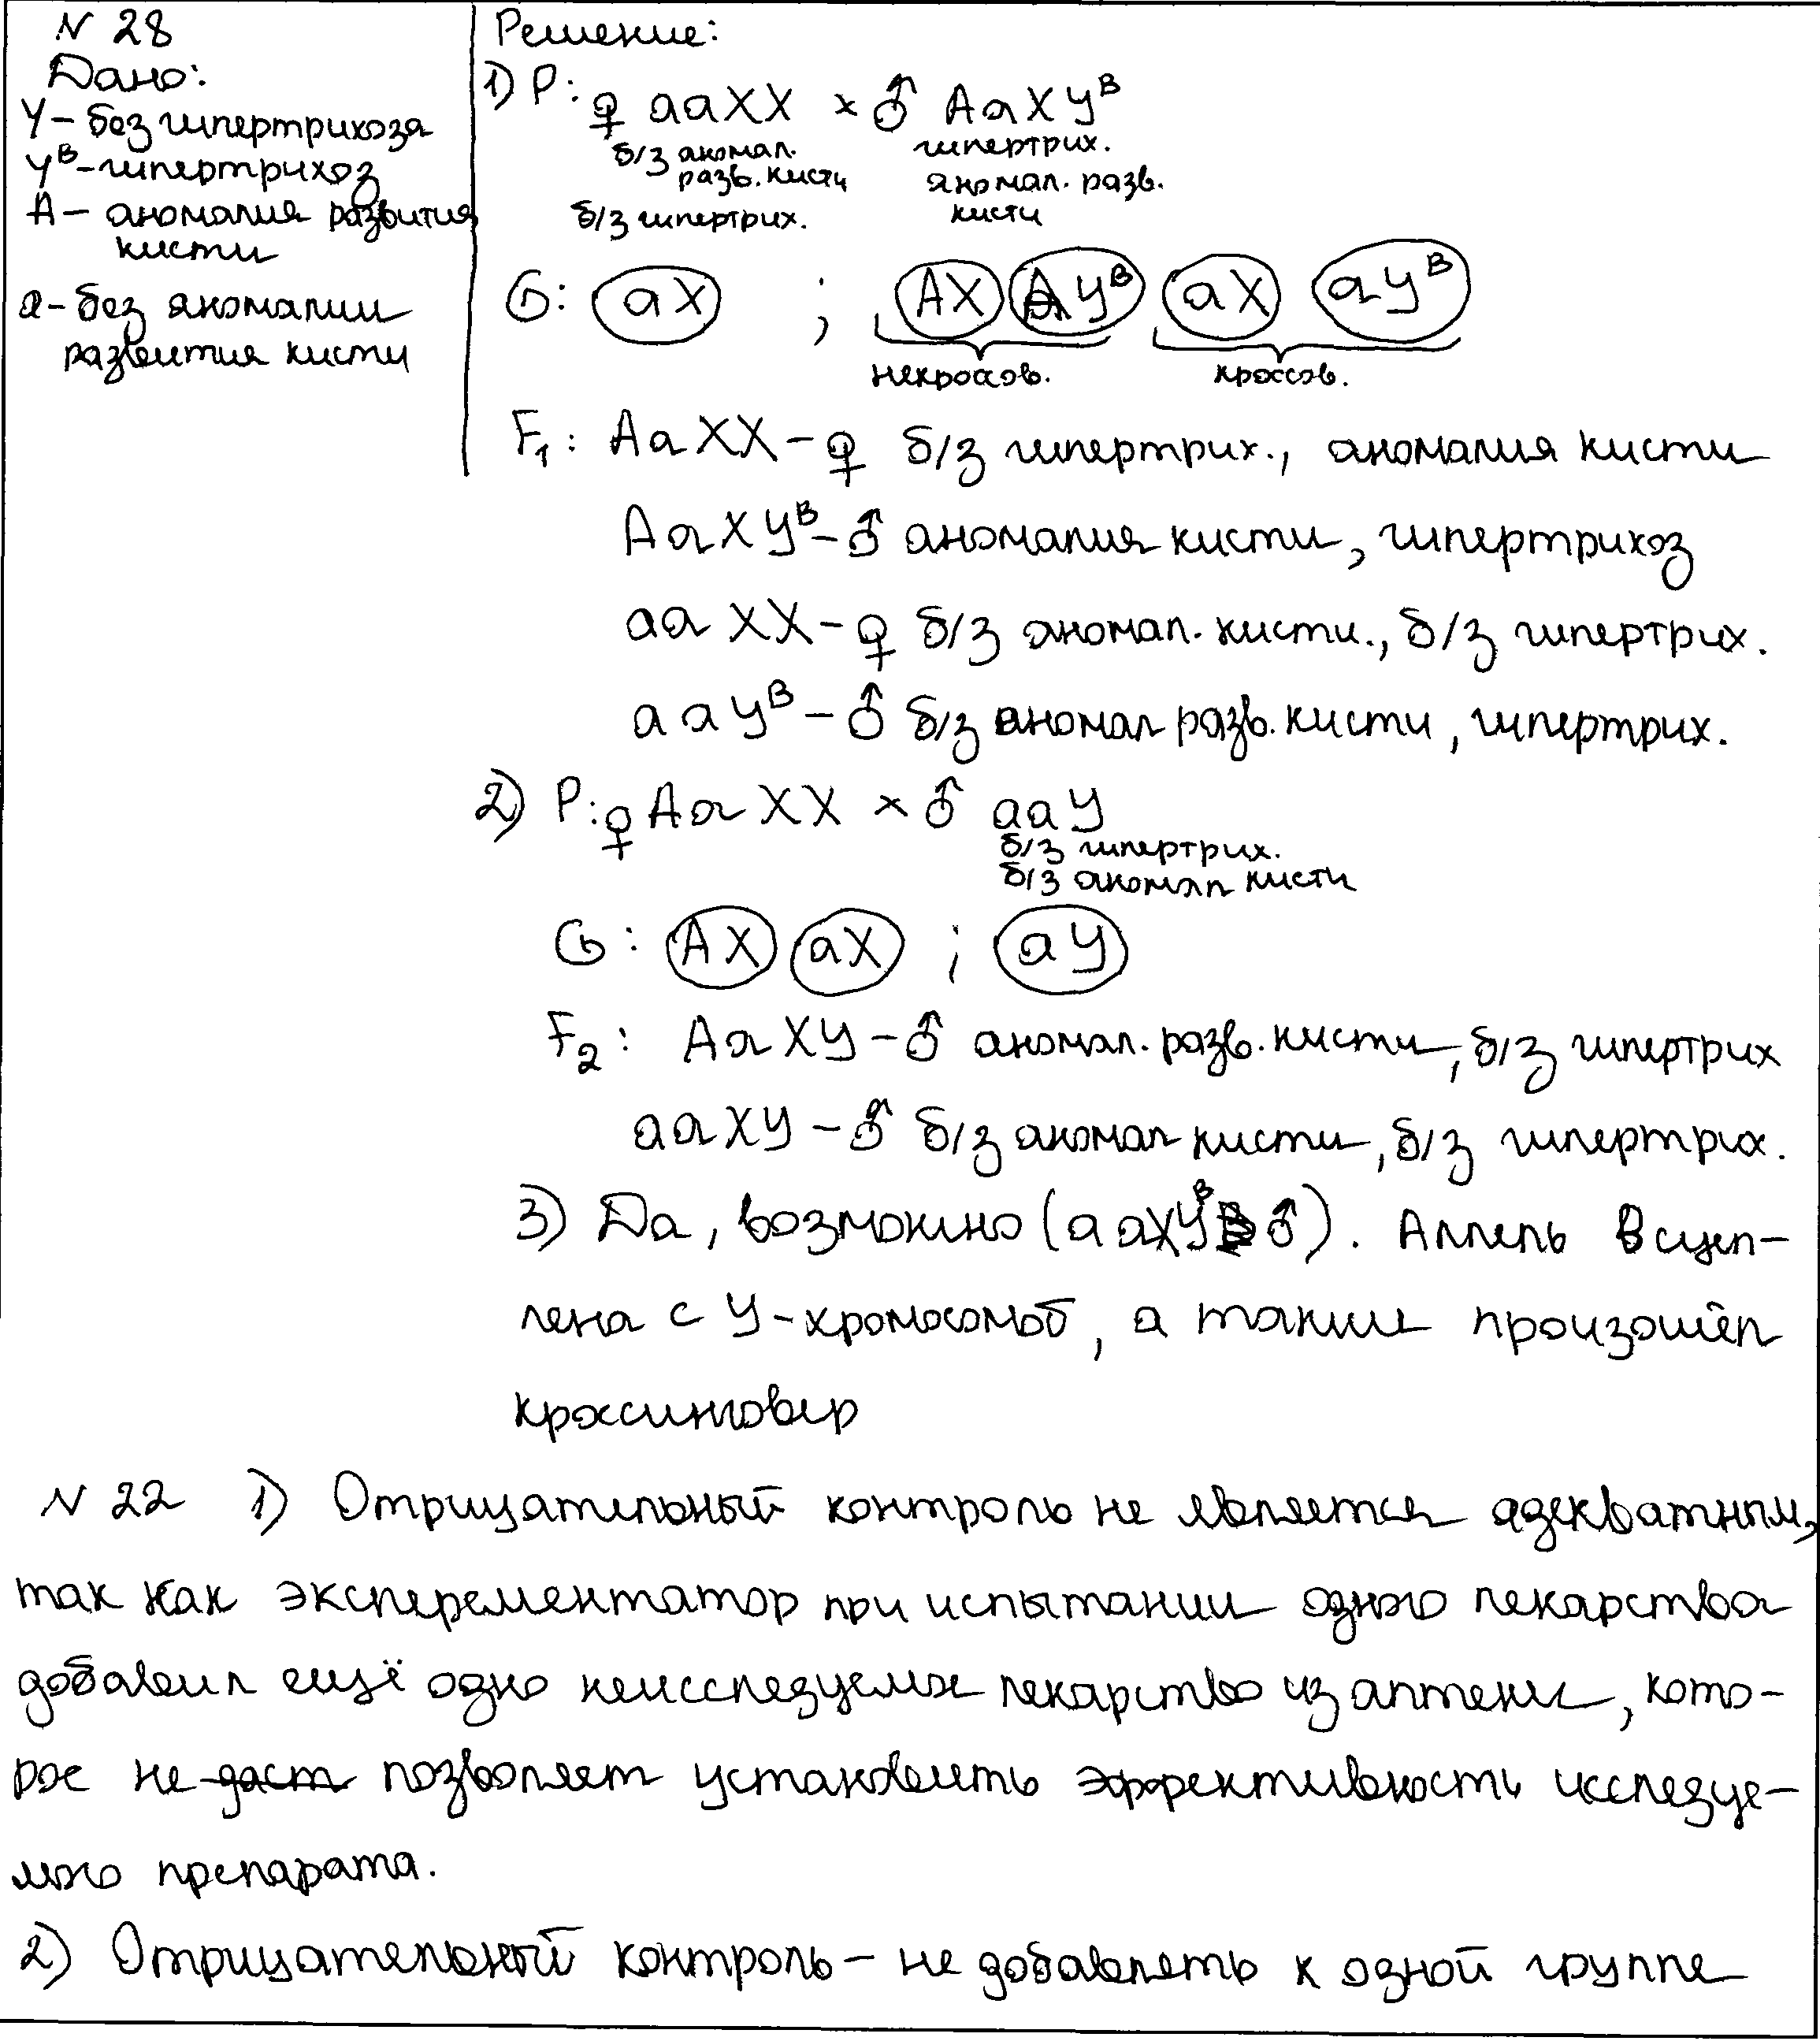 N 28
Дано:
Y – без гипертрихоза
Y^B – гипертрихоз
А – аномалия развития
кисти
а – без аномалии
развития кисти
Решение:
1) Р: ♀ aaXX × ♂ AaXY^B
б/з аномал. гипертрих.
разв. кисти аномал. разв.
б/з гипертрих. кисти
G: aX ; AX AY^B aX aY^B
некроссов. кроссов.
F1: AaXX – ♀ б/з гипертрих., аномалия кисти
AaXY^B – ♂ аномалия кисти, гипертрихоз
aaXX – ♀ б/з аномал. кисти., б/з гипертрих.
aaY^B – ♂ б/з аномал разв. кисти, гипертрих.
2) P: ♀ AaXX × ♂ aaY
б/з гипертрих.
б/з аномал кисти
G: AX aX ; aY
F2: AaXY – ♂ аномал. разв. кисти, б/з гипертрих
aaXY – ♂ б/з аномал кисти, б/з гипертрих.
3) Да, возможно (aaXY^B ♂). Аллель В сцеп-
лена с Y-хромосомой, а также произошёл
кроссинговер
N 22 1) Отрицательный контроль не является адекватным,
так как эксперементатор при испытании одного лекарства
добавил ещё одно неисследуемое лекарство из аптеки, кото-
рое не даст позволяет установить эффективность исследуе-
мого препарата.
2) Отрицательный контроль – не добавлять к одной группе